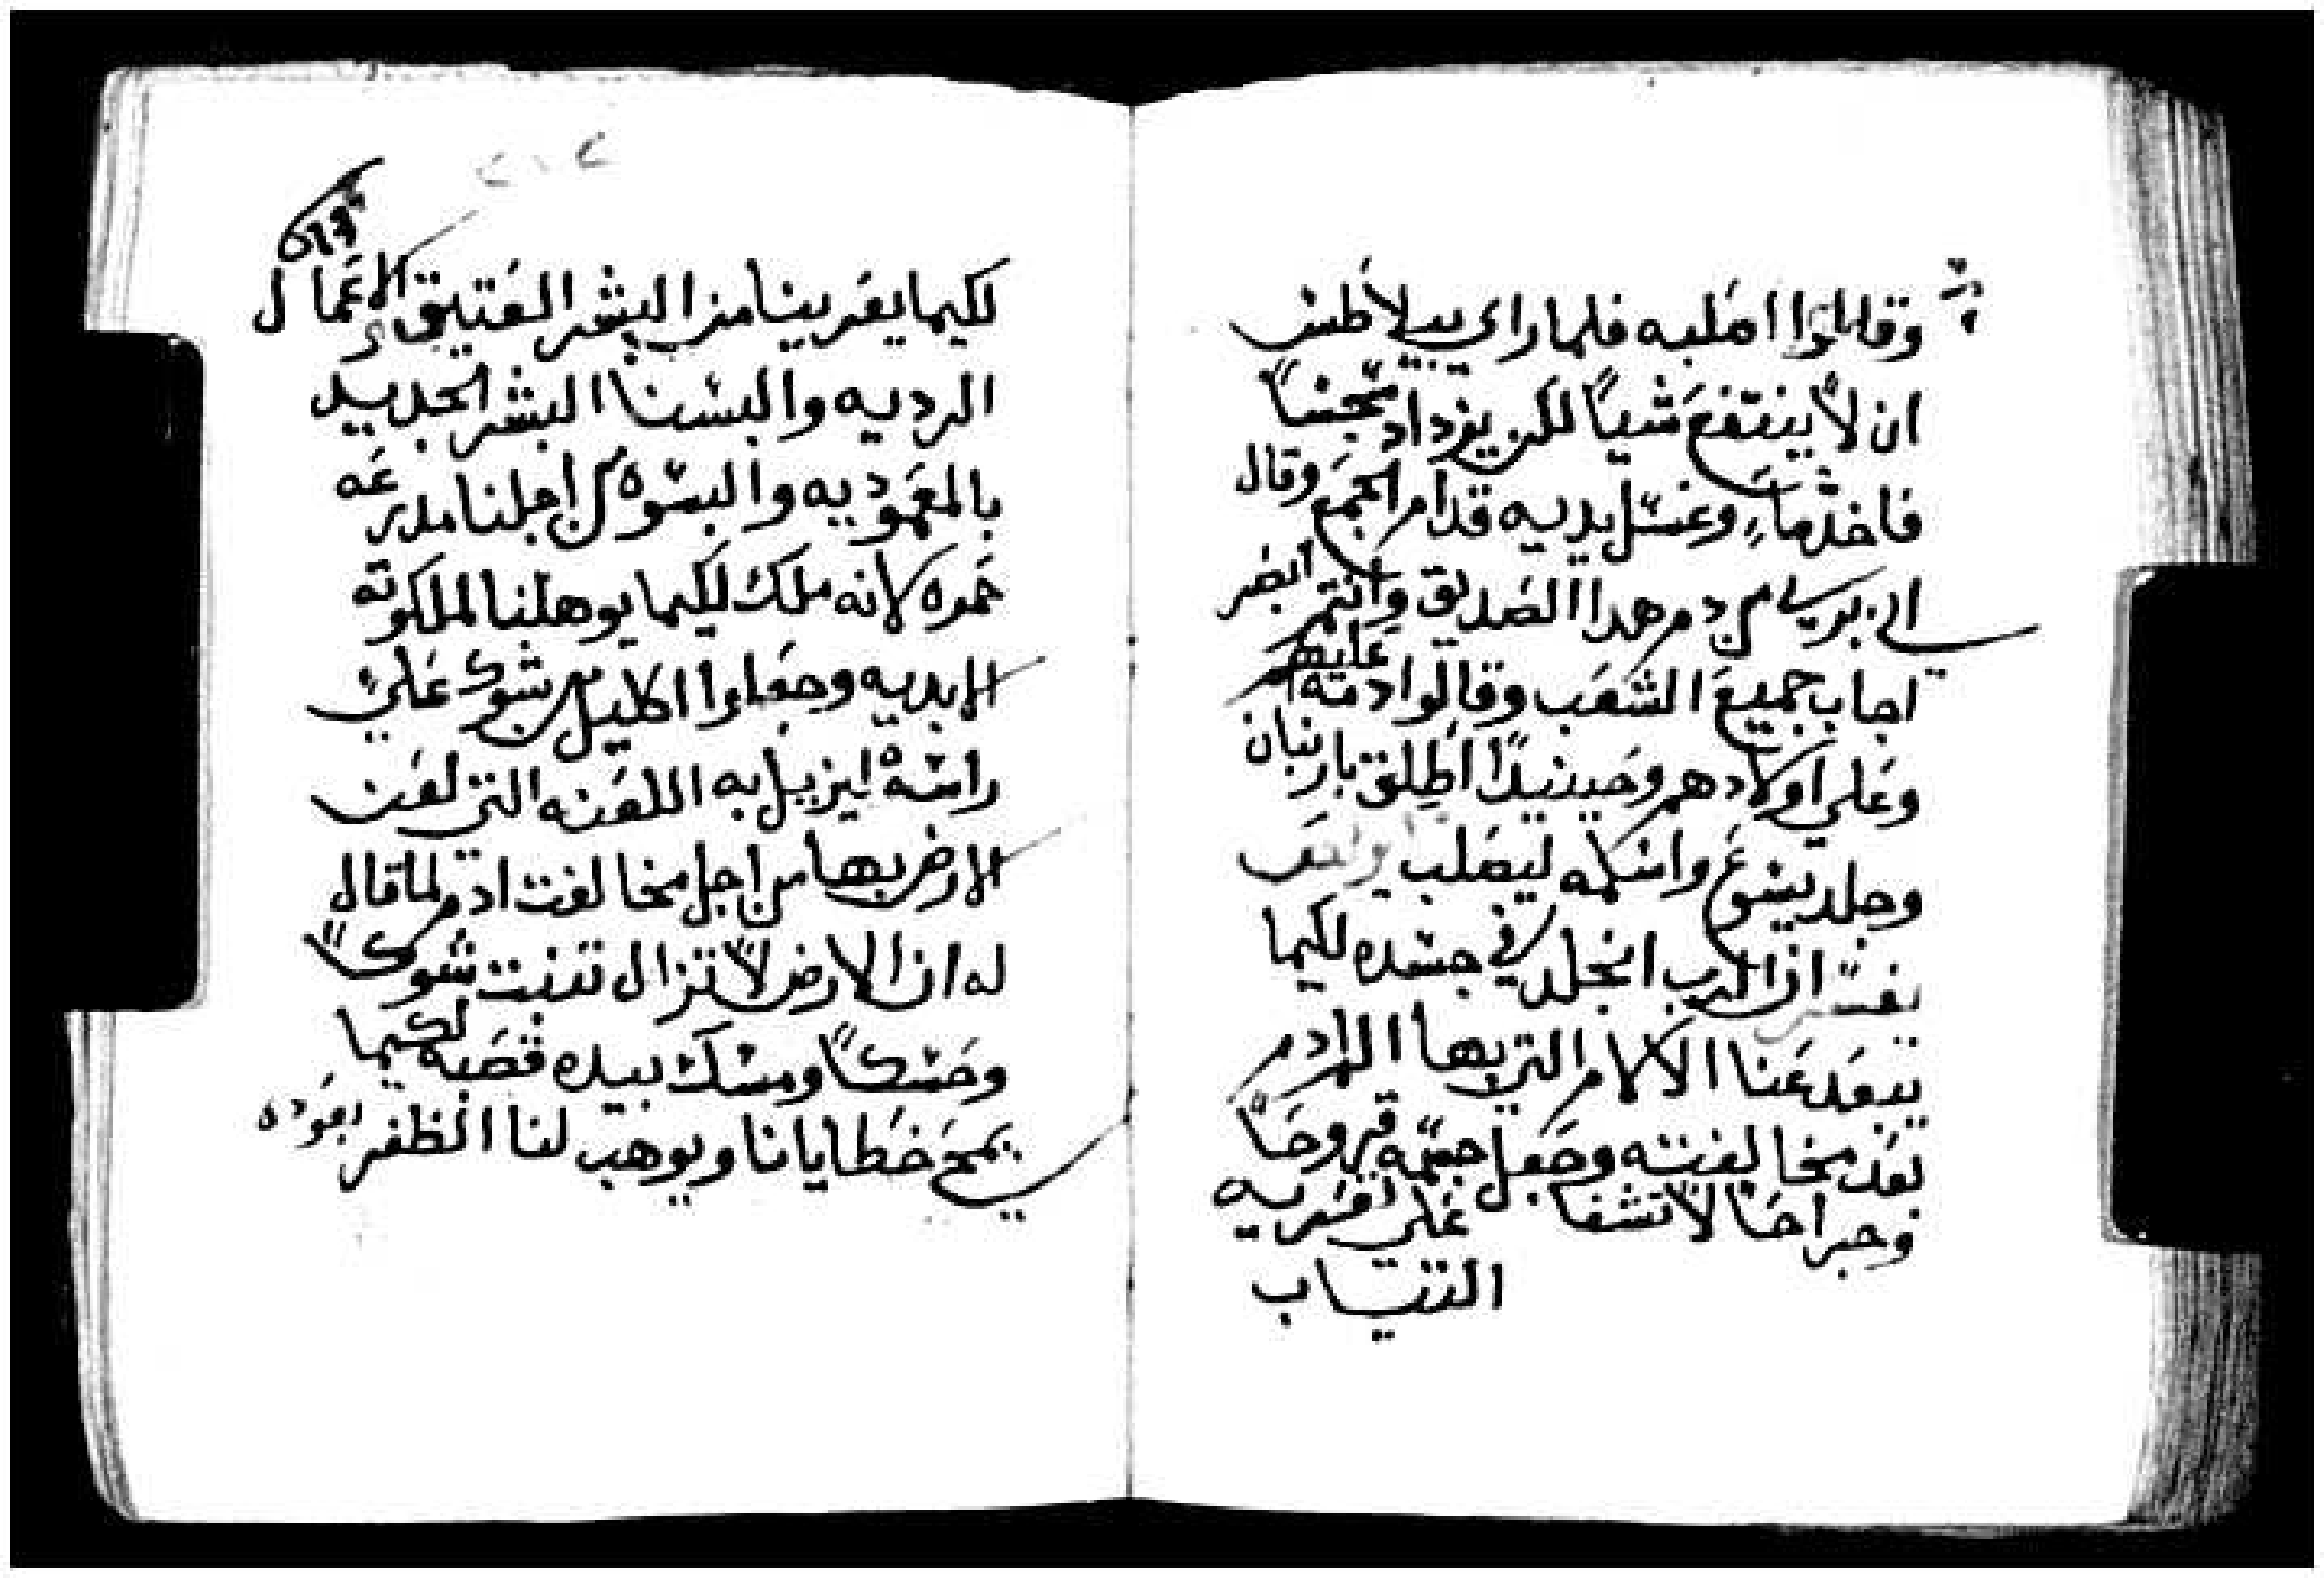 وقالوا اصلبه فلما راي بيلاطس
ان لا ينتفع شياً لكن يزداد تجسساً
فاخد ماء وغسل يديه قدام الجمع وقال
اني بري من دم هدا الصديق وانتم ابصر
اجاب جميع الشعب وقالوا دمه عليهم
وعلي اولادهم وحينيداً اطلق بارنبان
وجلد يسوع واسلمه ليصلب
يفسر ان الرب انجلد في جسده لكيما
يبعد عنا الالام التي بها ادم
بعد مخالفته وجعل جسمه قروحاً
وجراحاً لا تشفا علي تعريه
التياب
لكيما يعرينا من البشر العتيق الاعمال
الرديه والبسنا البشر الجديد
بالمعموديه والبسوه من اجلنا مدرعه
حمره لانه ملك لكيما يوهلنا لملكوته
الابديه وجعلوا اكليل من شوك علي
راسه ليزيل به اللعنه التي لعنت
الارض بها من اجل مخالفت ادم لما قال
له ان الارض لا تزال تنبت شوكاً
وحسكاً ومسك بيده قصبه لكيما
يمحي خطايانا ويوهب لنا الظفر بعوده